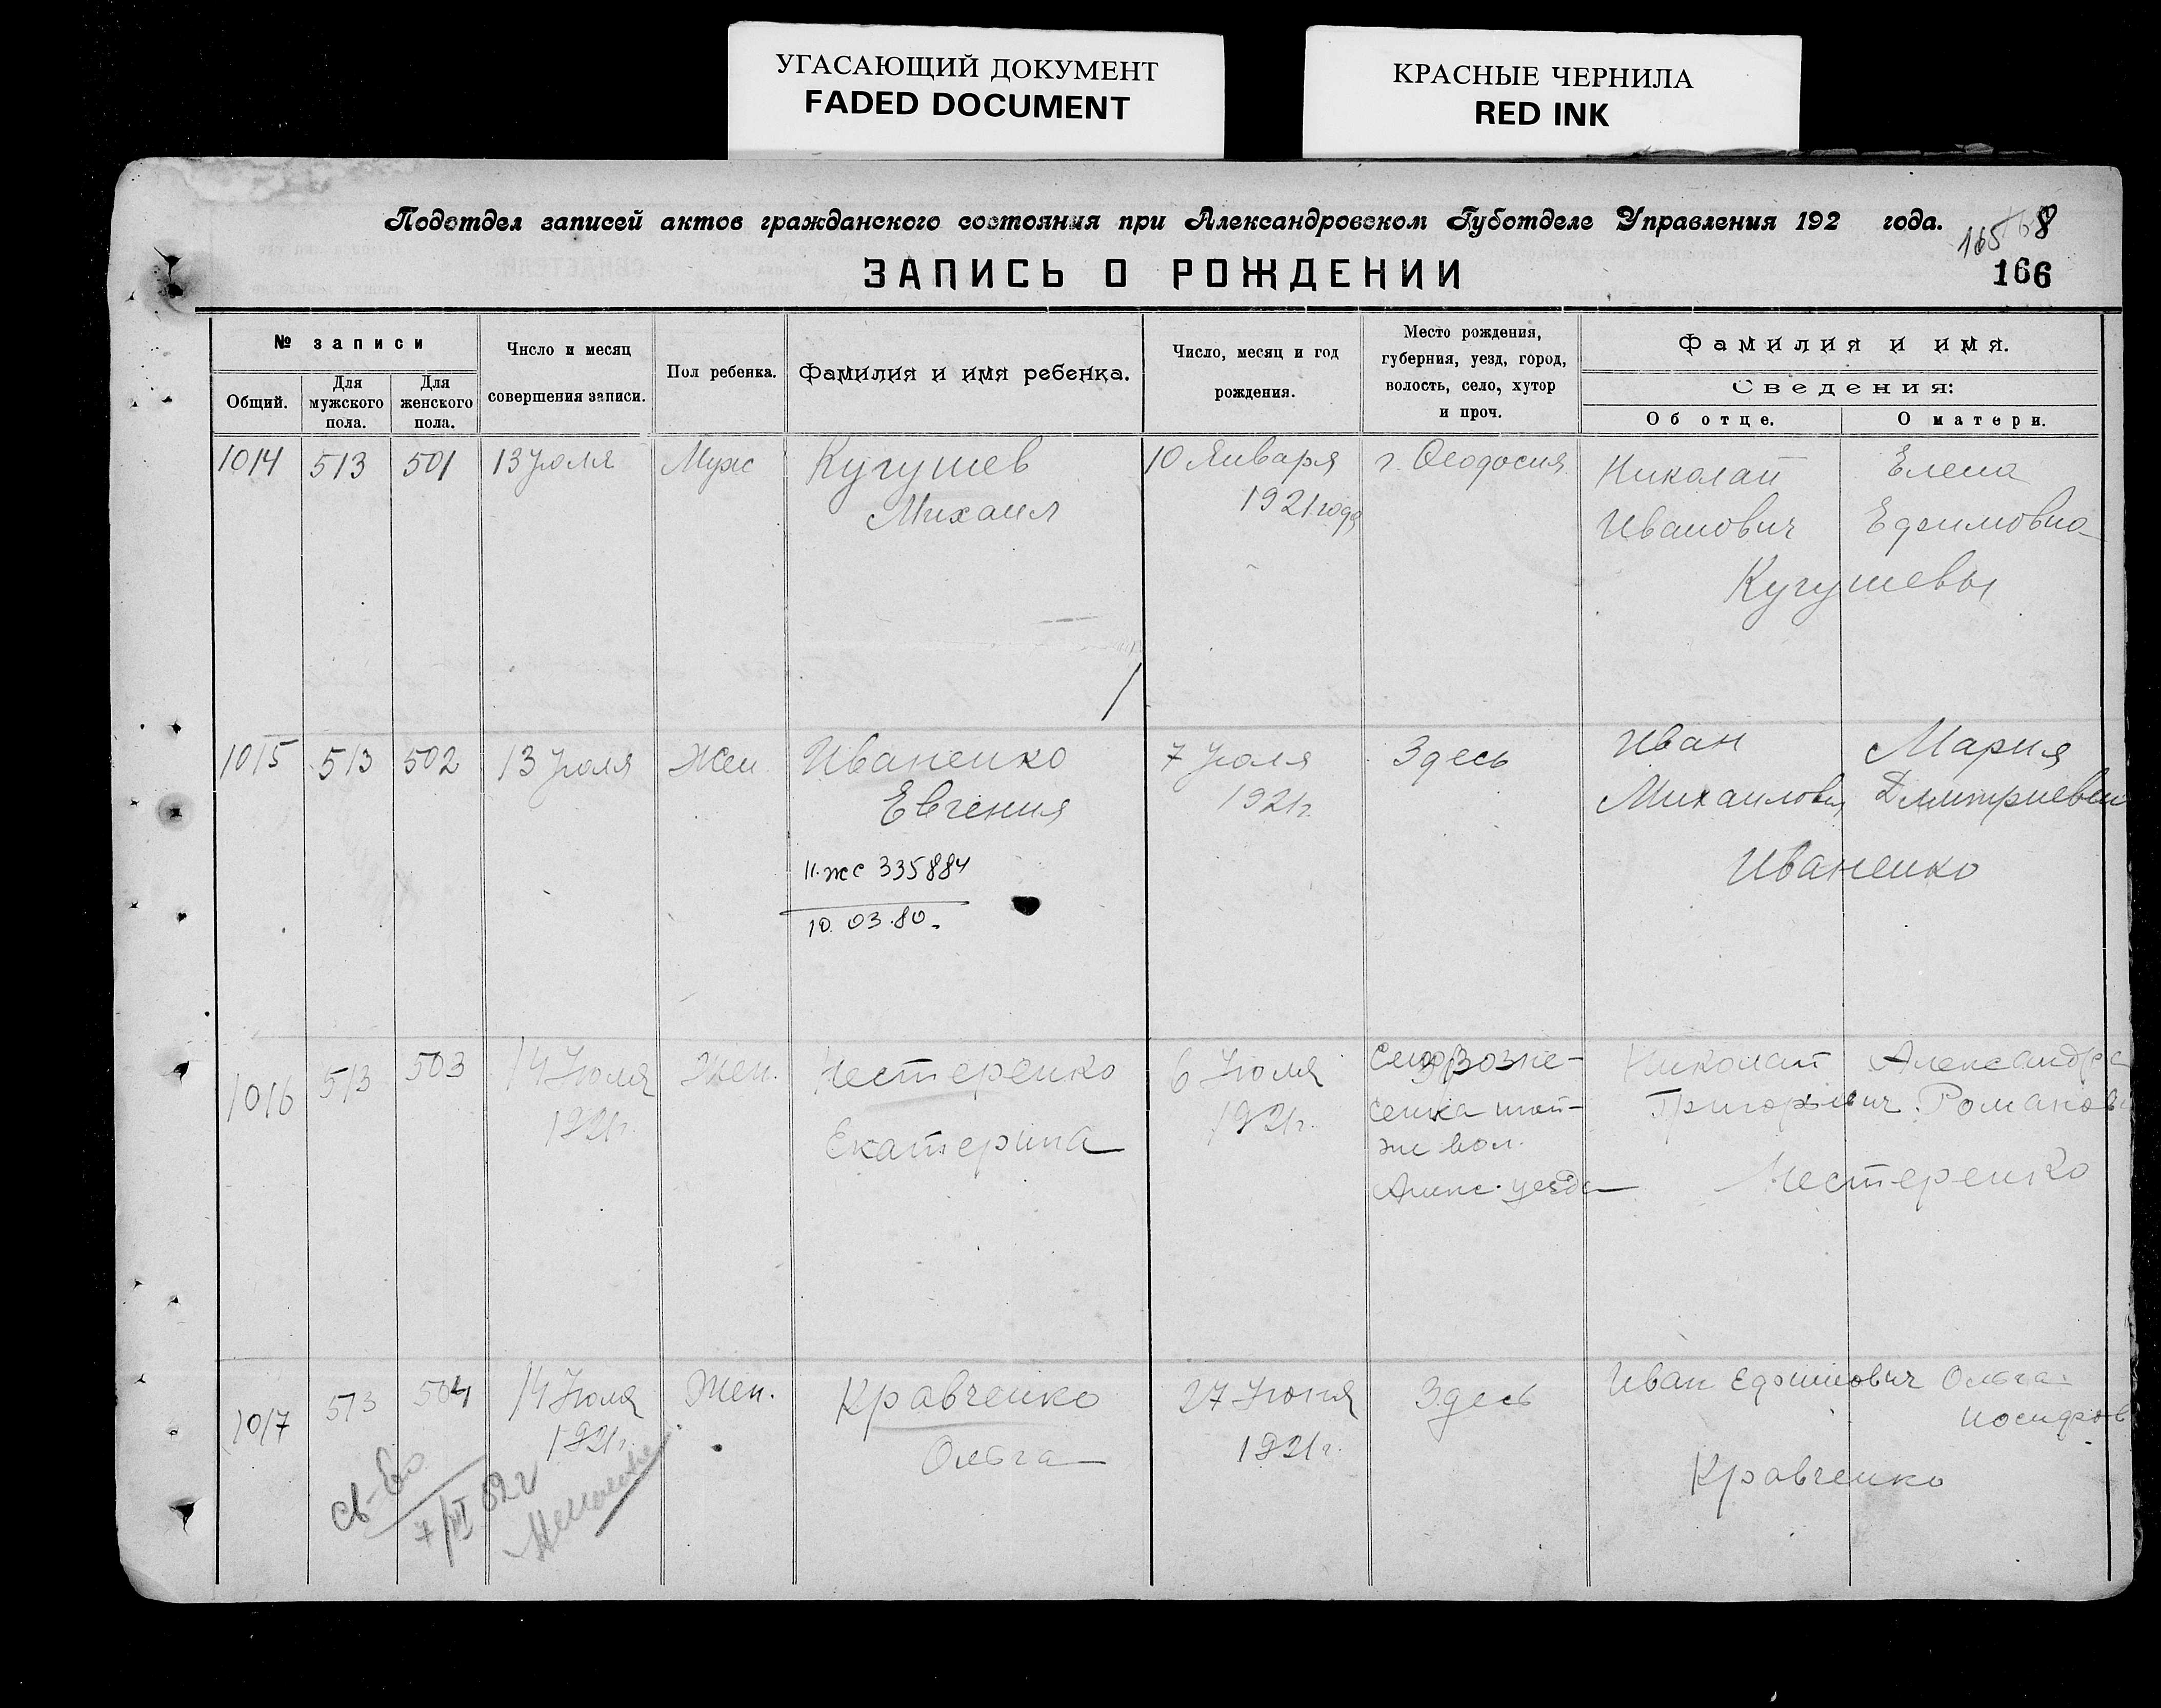 УГАСАЮЩИЙ ДОКУМЕНТ
FADED DOCUMENT
КРАСНЫЕ ЧЕРНИЛА
RED INK
Подотдел записей актов гражданского состояния при Александровском Губотделе Управления 192 года.
165 168
ЗАПИСЬ О РОЖДЕНИИ
166
№ записи
Общий.
Для мужского пола.
Для женского пола.
Число и месяц совершения записи.
Пол ребенка.
Фамилия и имя ребенка.
Число, месяц и год рождения.
Место рождения, губерния, уезд, город, волость, село, хутор и проч.
Фамилия и имя.
Сведения:
Об отце.
О матери.
1014 513 501 13 Июля Муж Кугушев 10 Января г. Феодосия Николай Елена
Михаил 1921 года Иванович Ефимовна
Кугушевы
1015 513 502 13 Июля Жен Иваненко 7 Июля Здесь Иван Мария
Евгения 1921г. Михайлович Дмитриевн
Иваненко
II-ЖС 335884
10.03.80.
1016 513 503 14 Июля Жен. Нестеренко 6 Июля Село Возне-
1921г. Екатерина 1921г. сенка
вол.
Алекс. уезда
Николай Александра
Григорьевич Романов
Нестеренко
1017 513 504 14 Июля Жен. Кравченко 27 Июня Здесь Иван Ефимович Ольга
1921г. Ольга 1921г. Иосифов
Кравченко
св-во